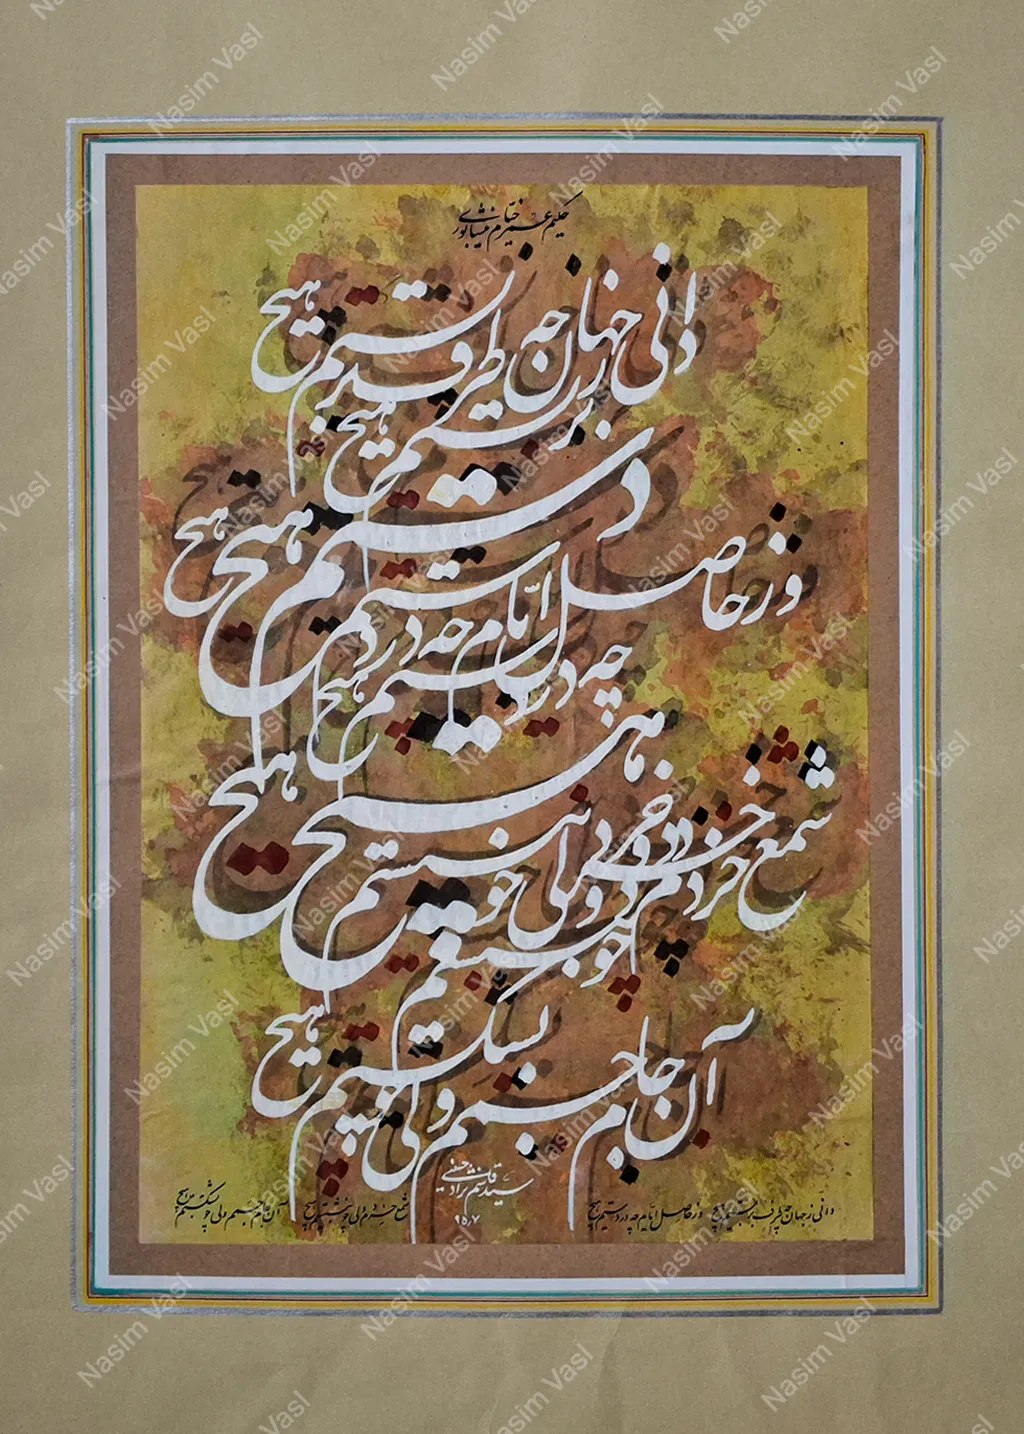 حکیم عمر خیام نیشابوری
دانی ز جهان چه طرف بربستم هیچ
وز حاصل ایام چه در دستم هیچ
شمع خردم ولی چو بنشستم هیچ
آن جام جمم ولی چو بشکستم هیچ
۹۵٫۷
دانی ز جهان چه طرف بربستم هیچ وز حاصل ایام چه در دستم هیچ شمع خردم ولی چو بنشستم هیچ آن جام جمم ولی چو بشکستم هیچ
Nasim Vasl